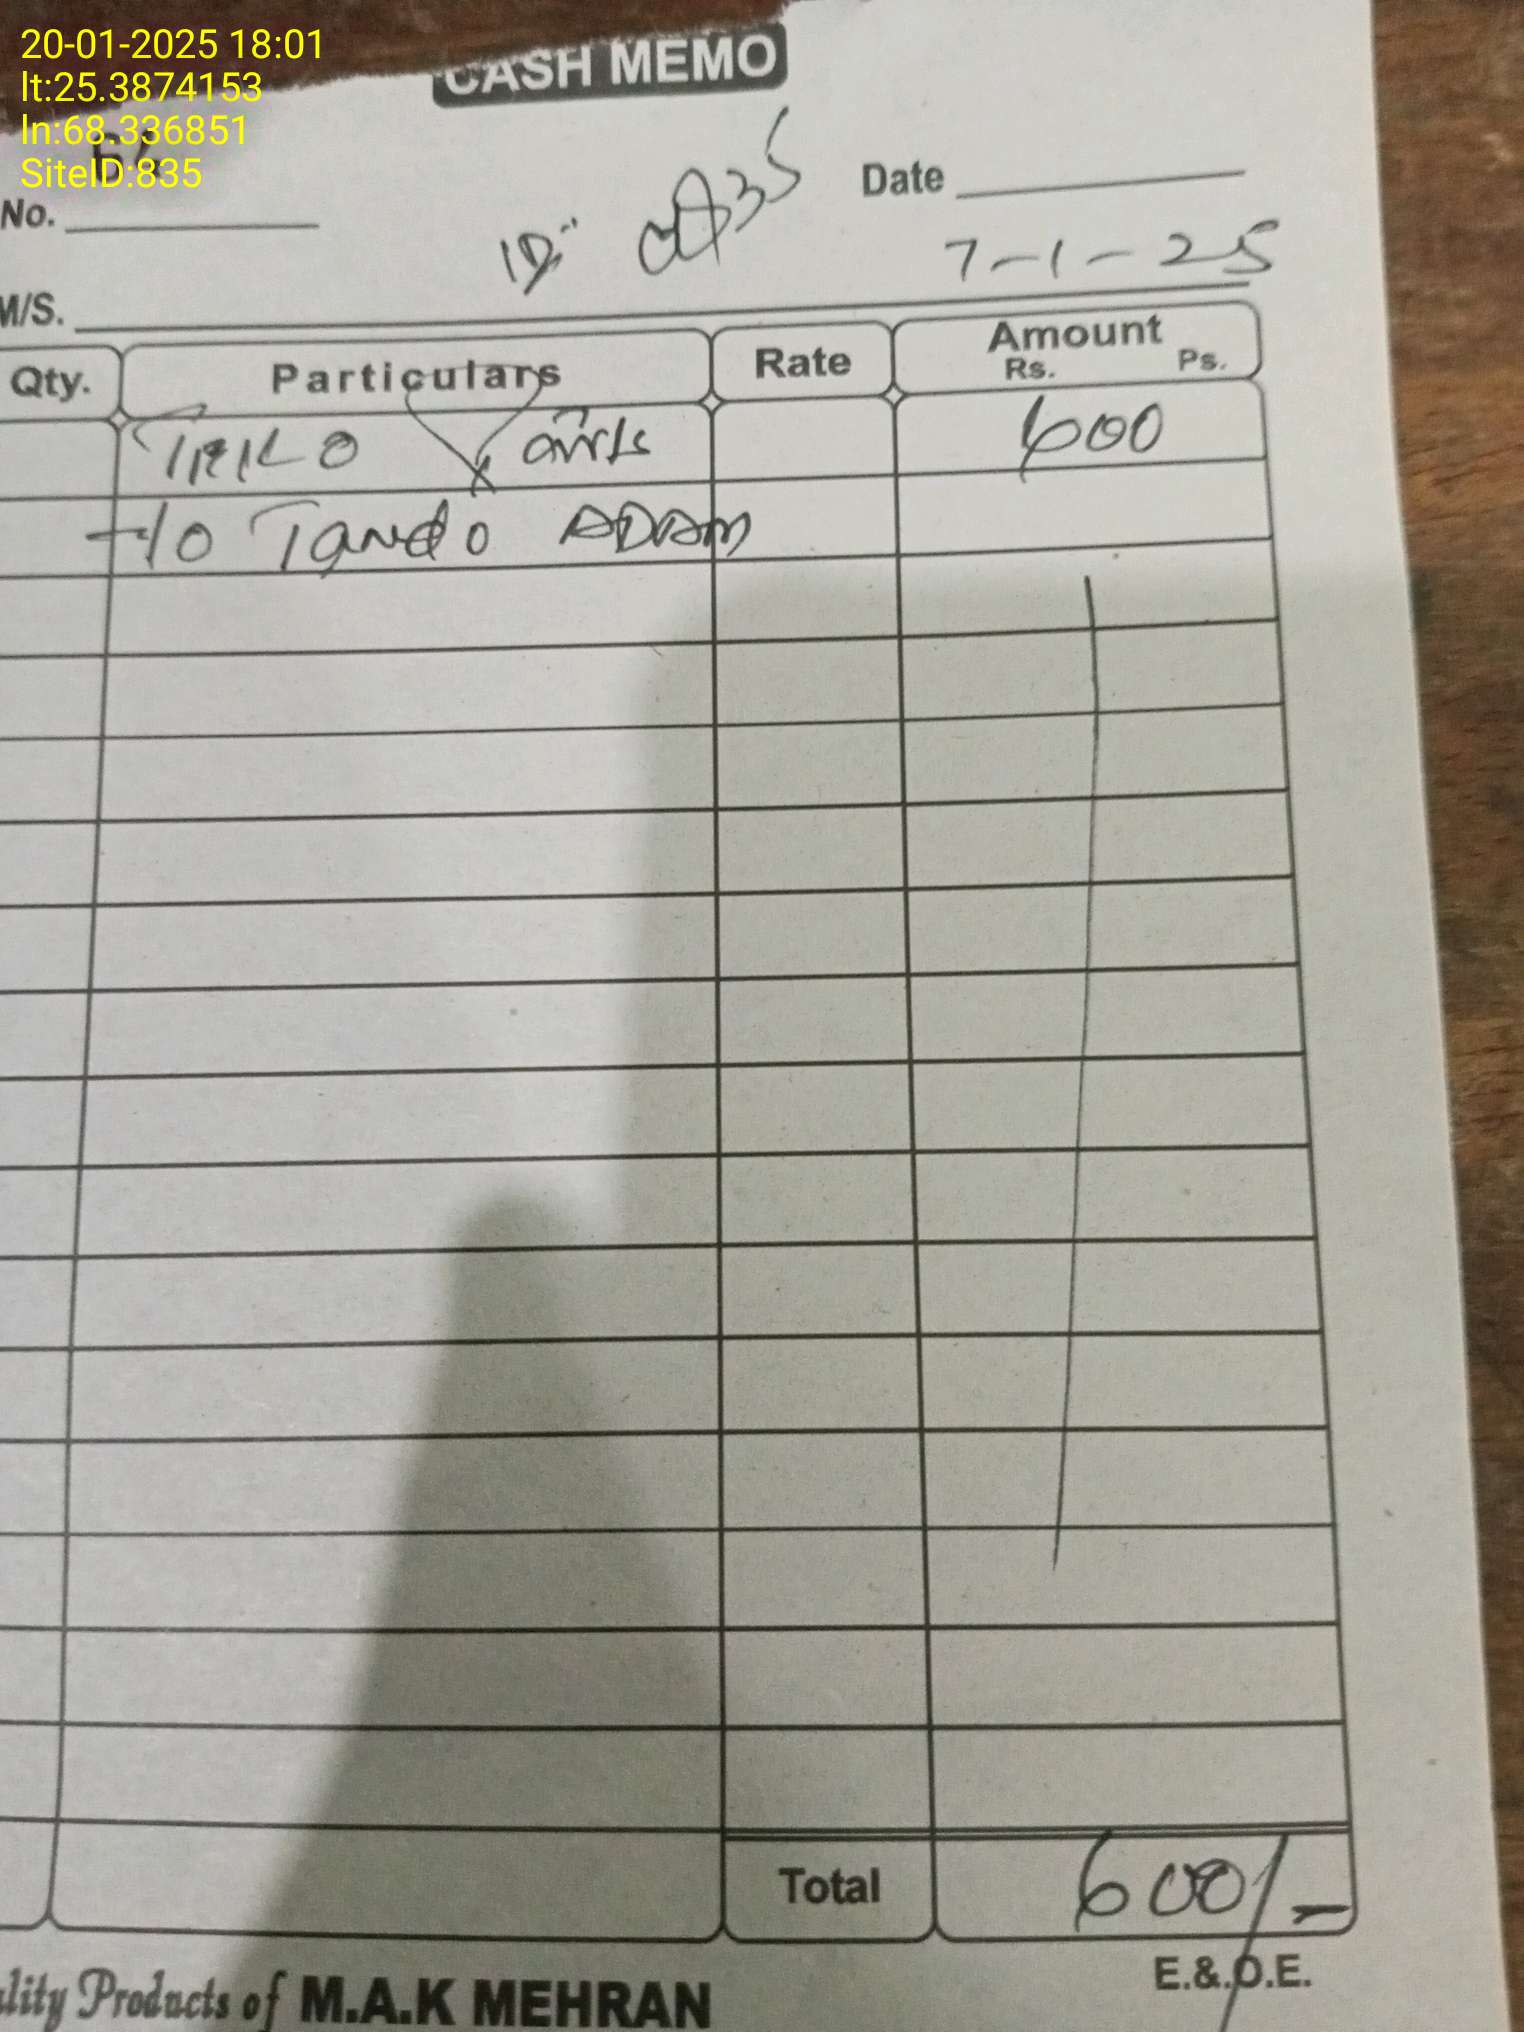 20-01-2025 18:01
lt:25.3874153
ln:68.336851
SiteID:835
CASH MEMO
No.
ID:
Date
7-1-25
M/S.
Qty. Particulars Rate Amount
Rs. Ps.
600
T/o Tando ADAM
Total 600/-
E.&.O.E.
Products of M.A.K MEHRAN